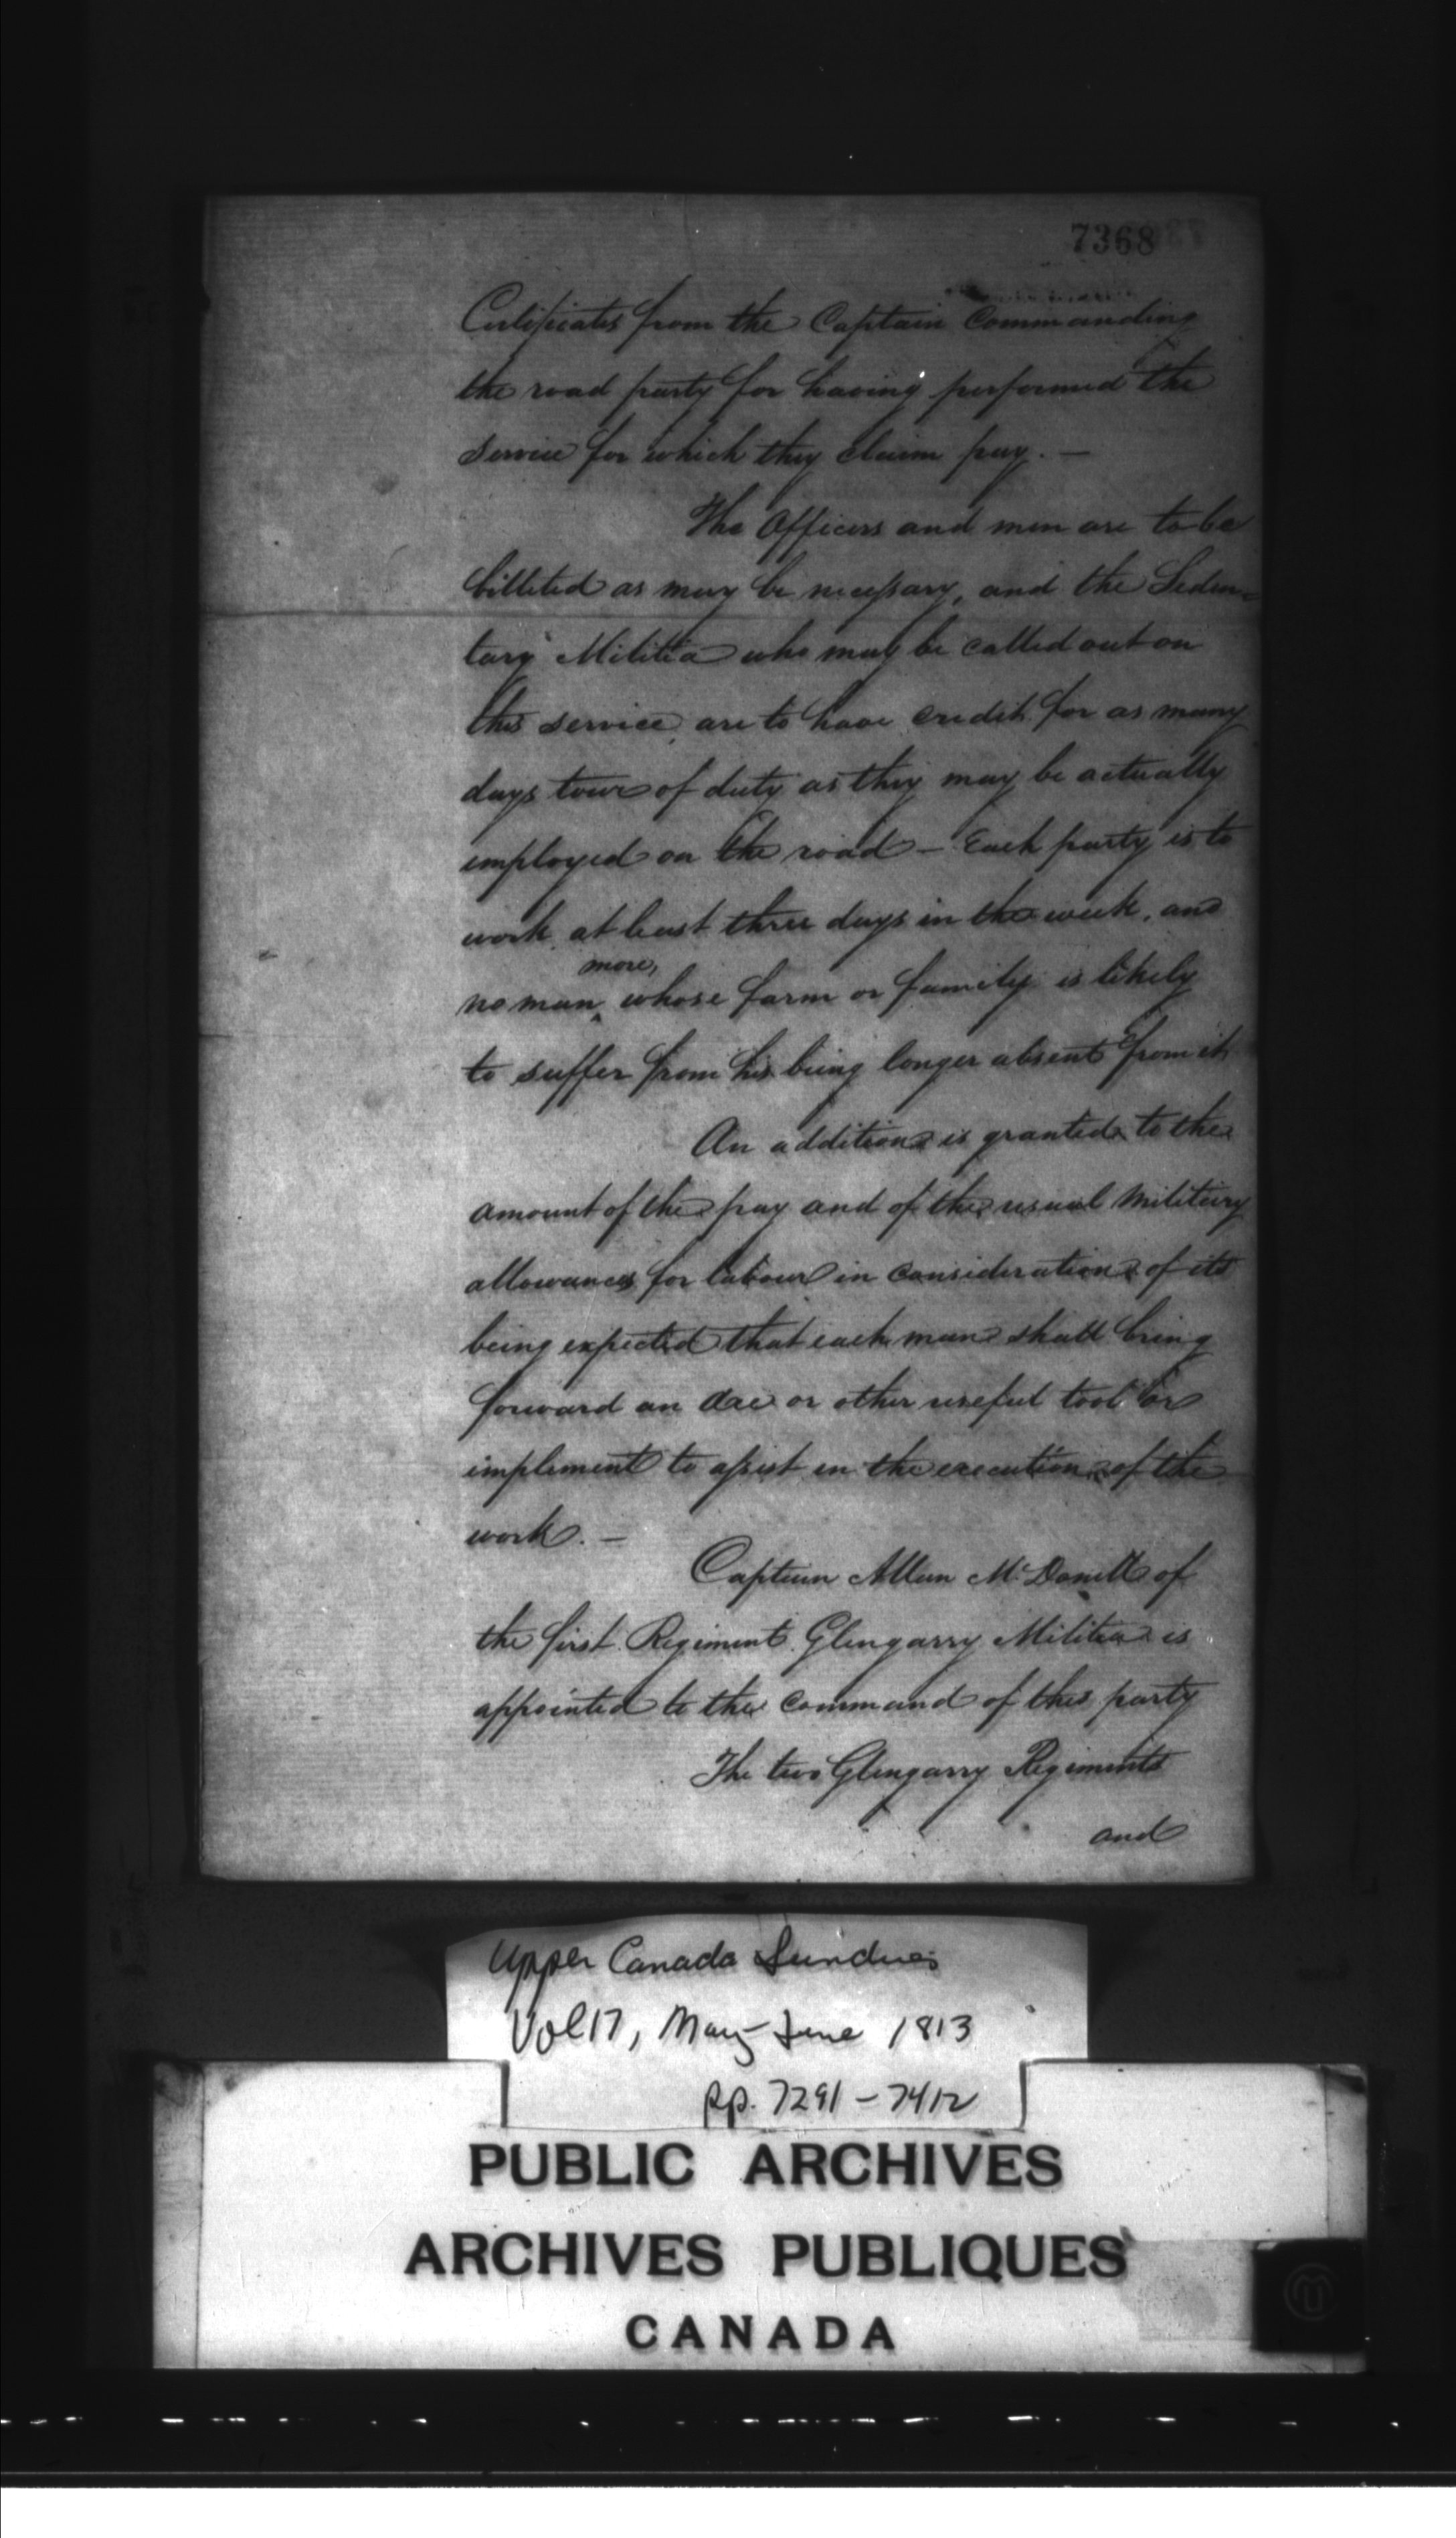 7368
Certificates from the Captain Commanding
the road party for having performed the
service for which they claim pay. —
The Officers and men are to be
billeted as may be necessary, and the Seden=
tary Militia who may be called out on
this service, are to have credit for as many
days tour of duty as they may be actually
employed on the road — Each party is to
work at least three days in the week, and
more,
no man ‸ whose farm or family is likely
to suffer from his being longer absent from it
An addition is granted to the
amount of the pay and of the usual military
allowances for labour in consideration of its
being expected that each man shall bring
forward an axe or other useful tool or
implement to assist in the execution of the
work. —
Captain Allan McDonell of
the first Regiment Glengarry Militia is
appointed to the command of this party
The two Glengarry Regiments
and
Upper Canada Sundries
Vol 17, May-June 1813
pp. 7291-7412
PUBLIC ARCHIVES
ARCHIVES PUBLIQUES
CANADA